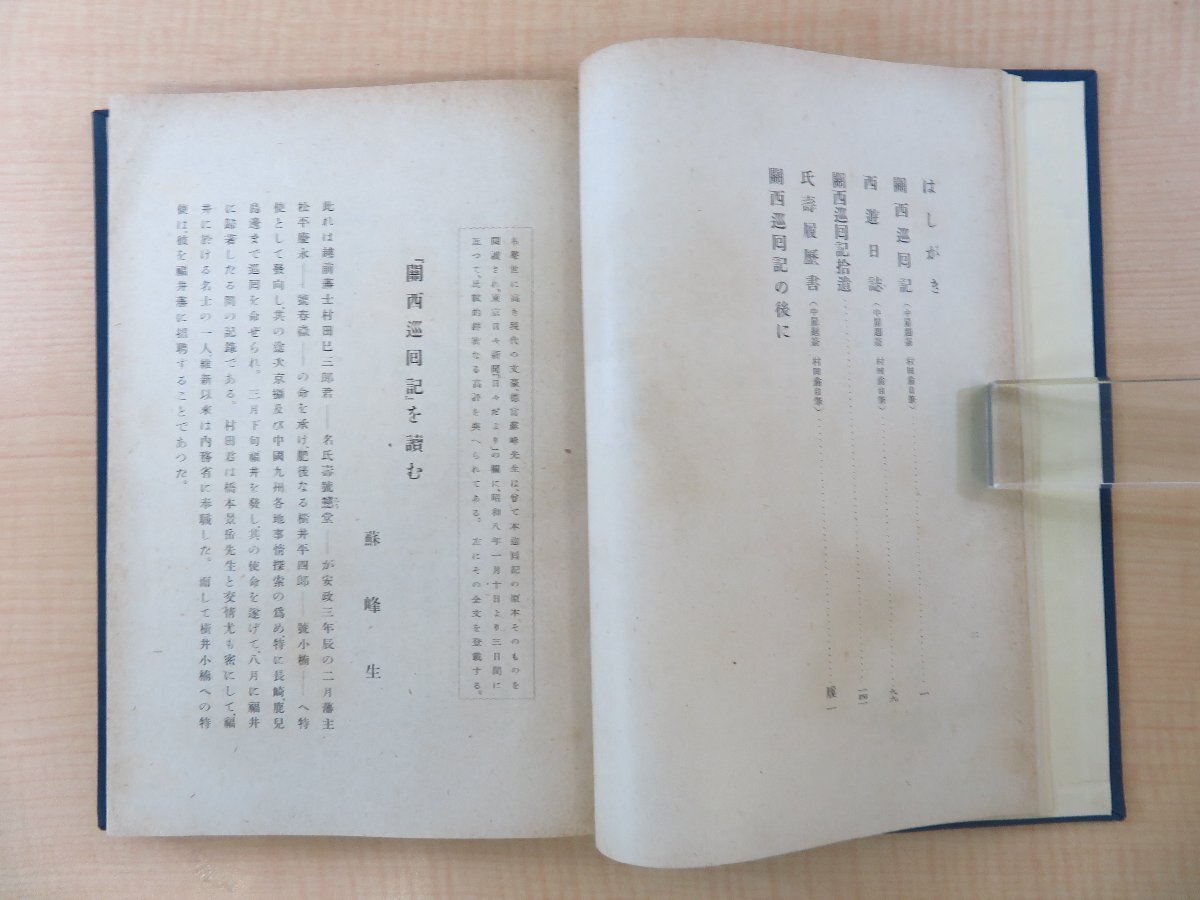 はしがき
關西巡囘記(中根雪江 村田氏自筆)……一
西遊日誌(中根雪江 村田氏自筆)……九六
關西巡囘記拾遺……一四一
氏壽履歷書……履一
關西巡囘記の後に
二
名聲世に高き現代の文豪、德富蘇峰先生は、曾て本巡囘記の原本、そのものを
閱讀され、東京日々新聞「日々だより」の欄に、昭和八年一月十日より三日間に
亘つて、比較的詳密なる高評を與へられてある。左にその全文を登載する。
『關西巡囘記』を讀む
蘇峰生
此れは越前藩士村田巳三郎君——名氏壽號堂——が安政三年辰の二月藩主
松平慶永——號春嶽——の命を承け、肥後なる橫井平四郎——號小楠——へ特
使として發向し、其の途次京攝及び中國九州各地事情探索の爲め、特に長崎、鹿兒
島邊まで巡囘を命ぜられ。三月下旬福井を發し、其の使命を遂げて、八月に福井
に歸着したる間の記錄である。村田君は橋本景岳先生と交情尤も密にして、福
井に於ける名士の一人、維新以來は內務省に奉職した。而して橫井小楠への特
使は、彼を福井藩に招聘することであつた。
一